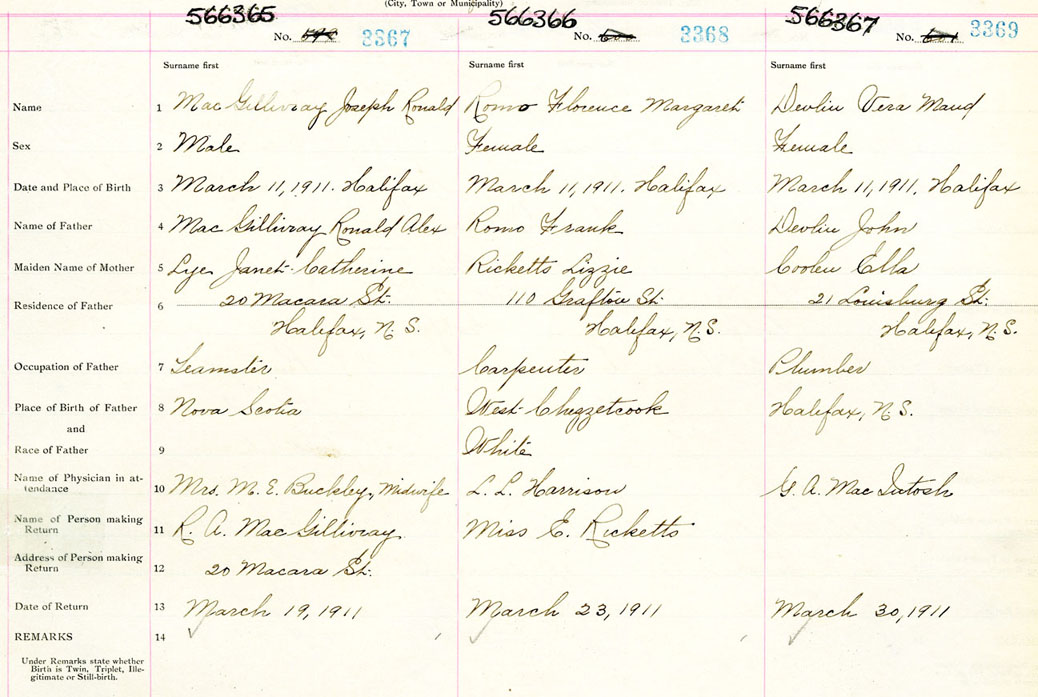 (City, Town or Municipality)
566365 566366 566367
No. 3367 No. 3368 No. 3369
Surname first Surname first Surname first
Name 1 Mac Gillivray Joseph Ronald Romo Florence Margaret Devlin Vera Maud
Sex 2 Male Female Female
Date and Place of Birth 3 March 11, 1911. Halifax March 11, 1911. Halifax March 11, 1911, Halifax
Name of Father 4 Mac Gillivray Ronald Alex Romo Frank Devlin John
Maiden Name of Mother 5 Lye Janet Catherine Ricketts Lizzie Coolen Ella
Residence of Father 6 20 Macara St. 110 Grafton St. 21 Louisburg St.
Halifax, N. S. Halifax, N. S. Halifax, N. S.
Occupation of Father 7 Teamster Carpenter Plumber
Place of Birth of Father 8 Nova Scotia West Chezzetcook Halifax, N. S.
and
Race of Father 9 White
Name of Physician in at- 10 Mrs. M. E. Buckley, Midwife L. L. Harrison G. A. Mac Intosh
tendance
Name of Person making 11 R. A. Mac Gillivray Miss E. Ricketts
Return
Address of Person making 12 20 Macara St.
Return
Date of Return 13 March 19, 1911 March 23, 1911 March 30, 1911
REMARKS 14
Under Remarks state whether
Birth is Twin, Triplet, Ille-
gitimate or Still-birth.